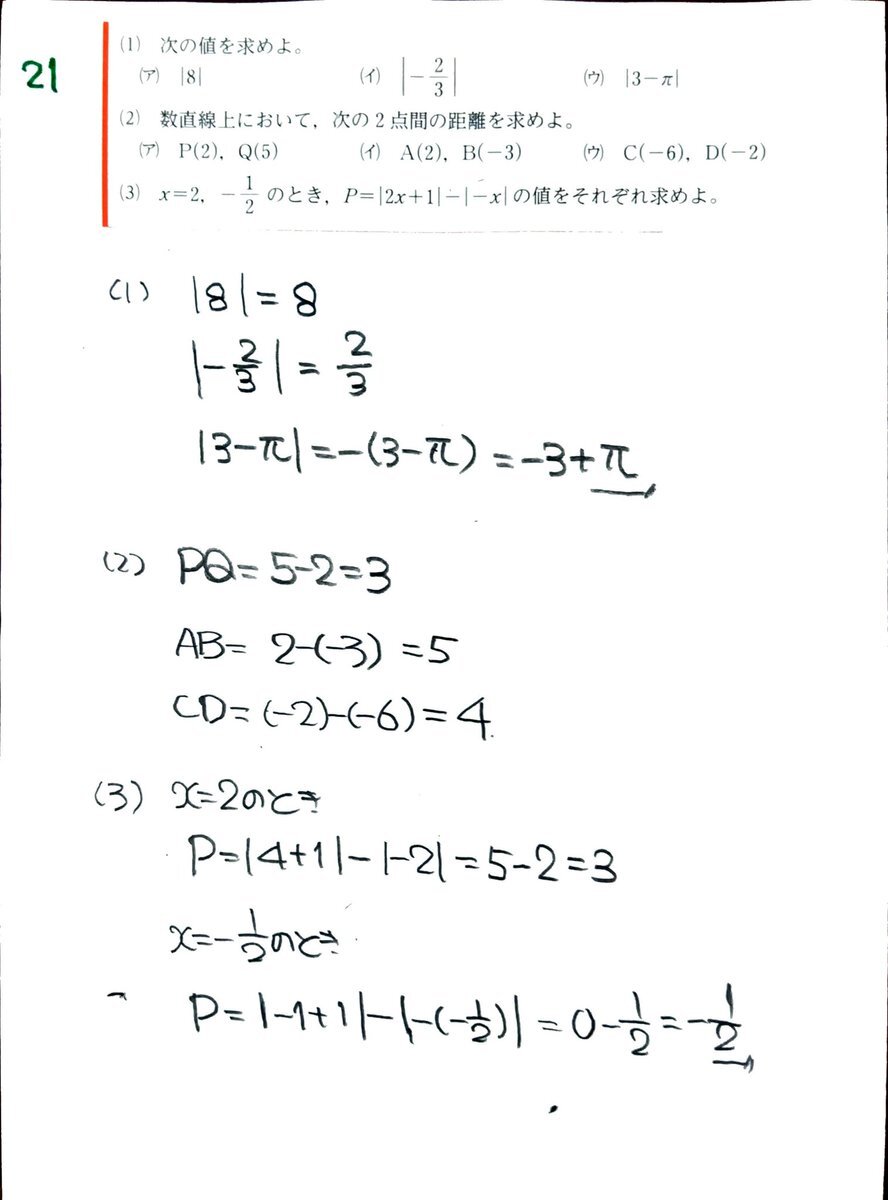 21
(1) 次の値を求めよ。
(ア) |8| (イ) |-2/3| (ウ) |3-π|
(2) 数直線上において，次の2点間の距離を求めよ。
(ア) P(2)，Q(5) (イ) A(2)，B(-3) (ウ) C(-6)，D(-2)
(3) x=2，-1/2 のとき，P=|2x+1|-|-x| の値をそれぞれ求めよ。
(1) |8|=8
|-2/3|=2/3
|3-π|=-(3-π)=-3+π
(2) PQ=5-2=3
AB=2-(-3)=5
CD=(-2)-(-6)=4
(3) x=2のとき
P=|4+1|-|-2|=5-2=3
x=-1/2のとき
P=|-1+1|-|-(-1/2)|=0-1/2=-1/2